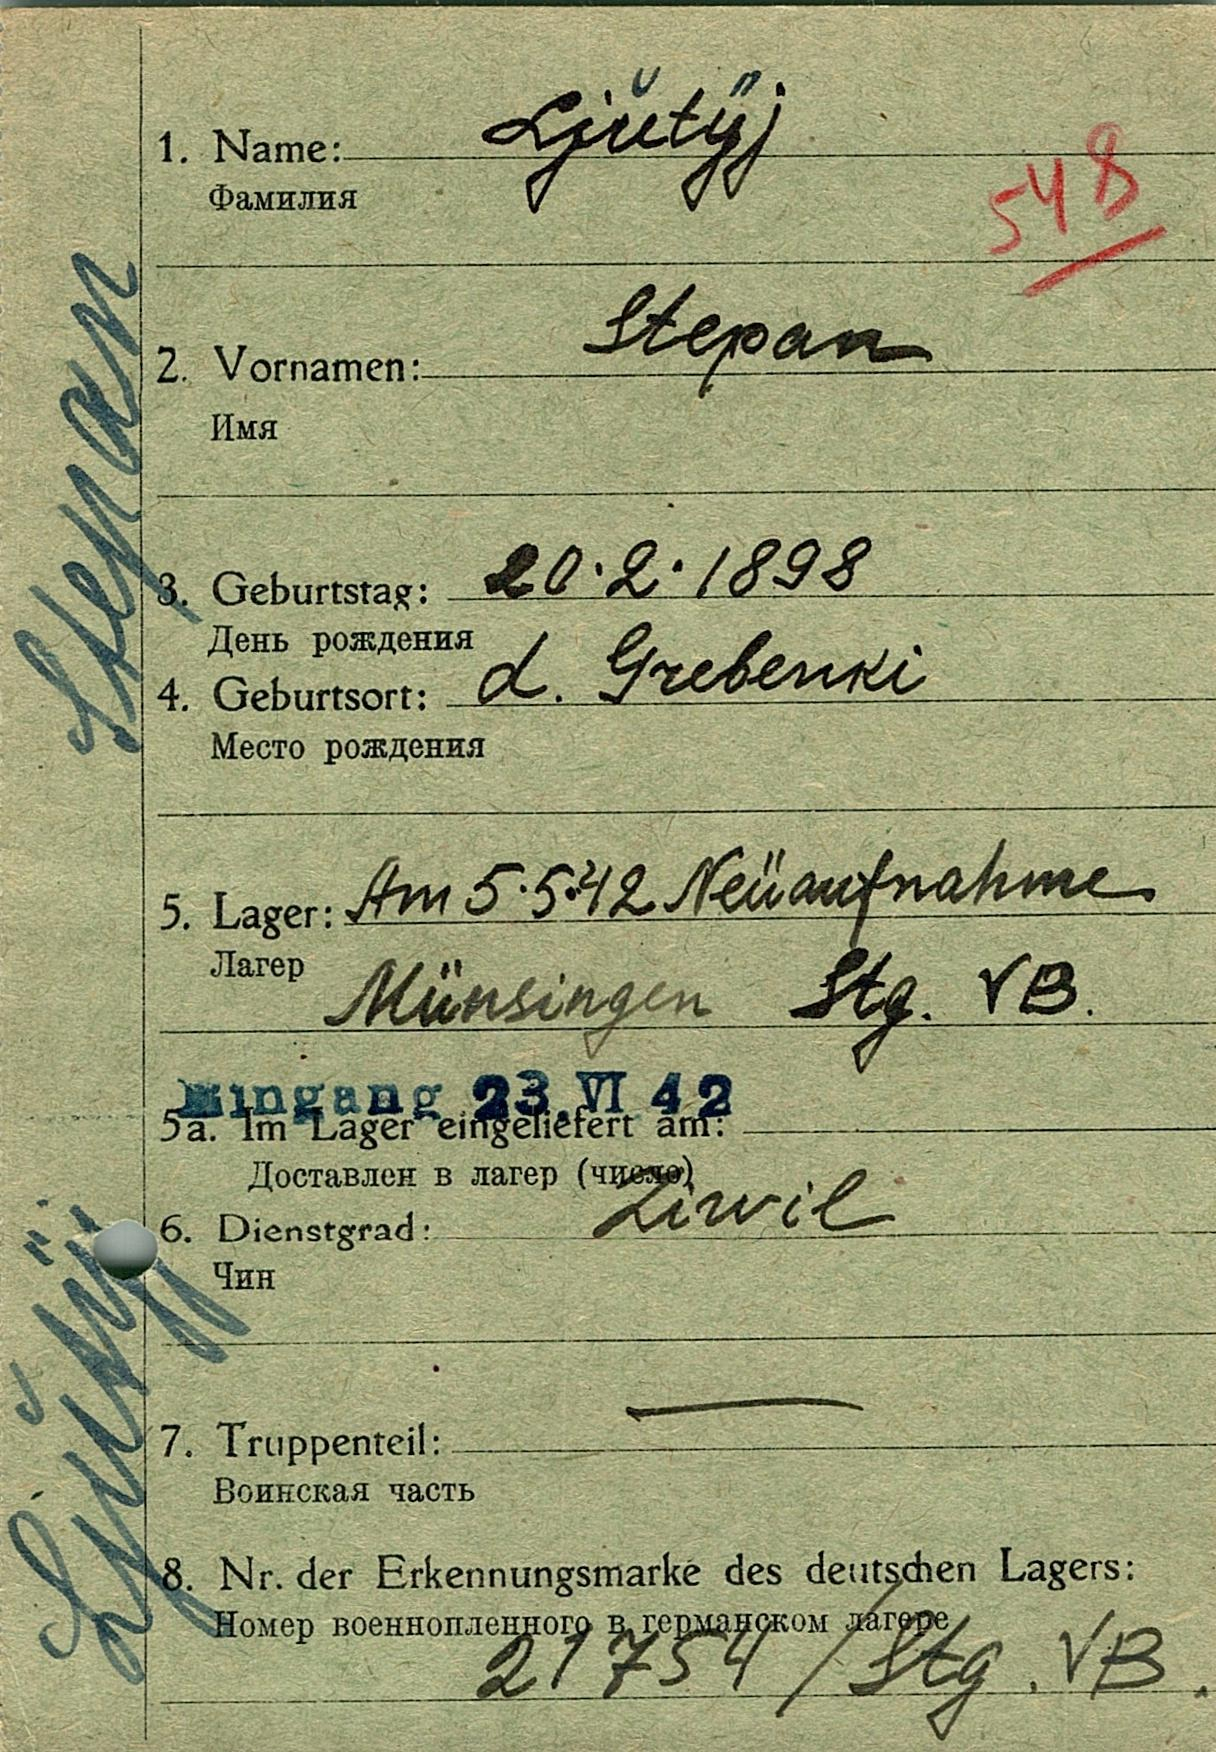 1. Name: Ljŭtÿj
Фамилия
548
2. Vornamen: Stepan
Имя
3. Geburtstag: 20.2.1898
День рождения
4. Geburtsort: d. Grebenki
Место рождения
5. Lager: Am 5.5.42 Neüaufnahme
Лагер
Münsingen Stg. VB.
Eingang 23. VI 42
5a. Im Lager eingeliefert am:
Доставлен в лагер (число)
6. Dienstgrad: Ziwil
Чин
7. Truppenteil: —
Воинская часть
8. Nr. der Erkennungsmarke des deutschen Lagers:
Номер военнопленного в германском лагере
21754 / Stg. VB.
Ljŭtÿj Stepan